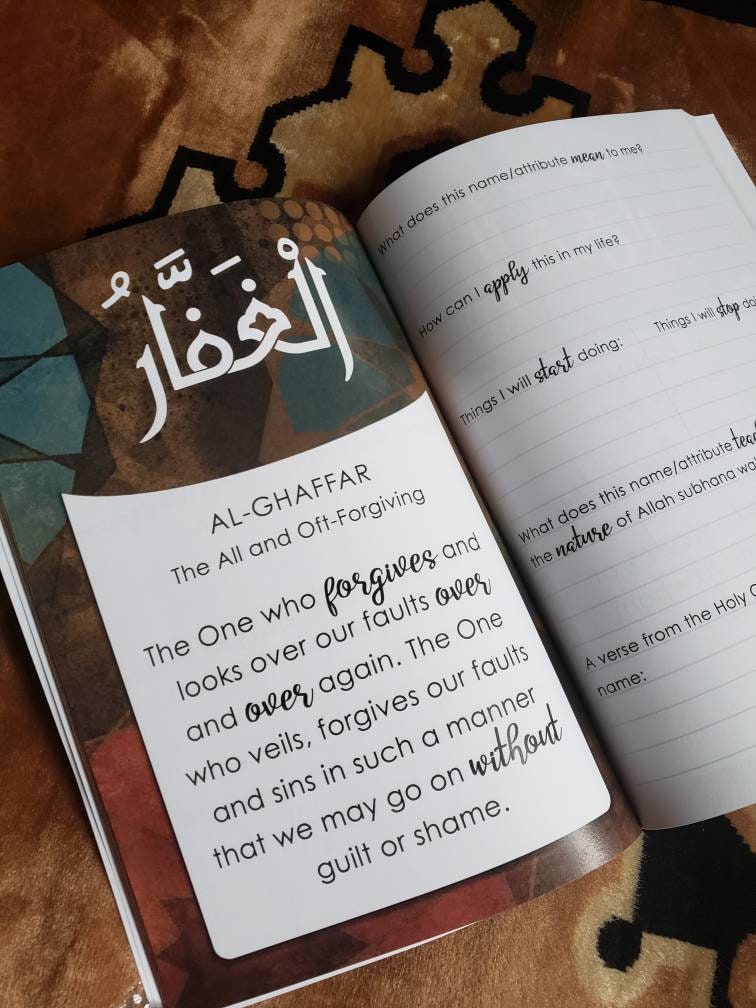 الْغَفَّارُ
AL-GHAFFAR
The All and Oft-Forgiving
The One who forgives and
looks over our faults over
and over again. The One
who veils, forgives our faults
and sins in such a manner
that we may go on without
guilt or shame.
What does this name/attribute mean to me?
How can I apply this in my life?
Things I will start doing:
Things I will stop
What does this name/attribute
the nature of Allah subhana
A verse from the Holy
name: